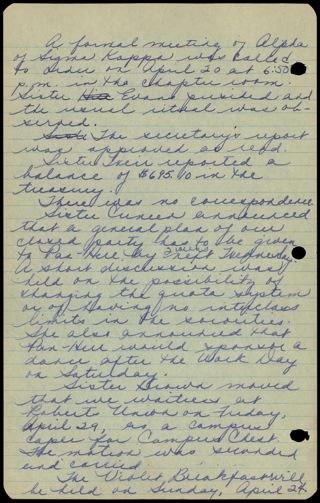 A formal meeting of Alpha
of Sigma Kappa was called
to order on April 20 at 6:50
p.m. in the chapter room.
Sister Evans presided and
the usual ritual was ob-
served.
The secretary's report
was approved as read.
Sister Weir reported a
balance of $695.10 in the
treasury.
There was no correspondence.
Sister announced
that a general plan of our
closed party had to be given
to Pan-Hell by next Wednesday.
A short discussion was
held on the possibility of
changing the quota system
or of having no
limits in the sororities.
She also announced that
Pan-Hell would sponsor a
dance after the Work Day
on Saturday.
Sister Brown moved
that we waitress at
Roberts Union on Friday,
April 29, as a campus
caper for Campus Chest.
The motion was seconded
and carried.
The Violet Breakfast will
be held on Sunday, April 24